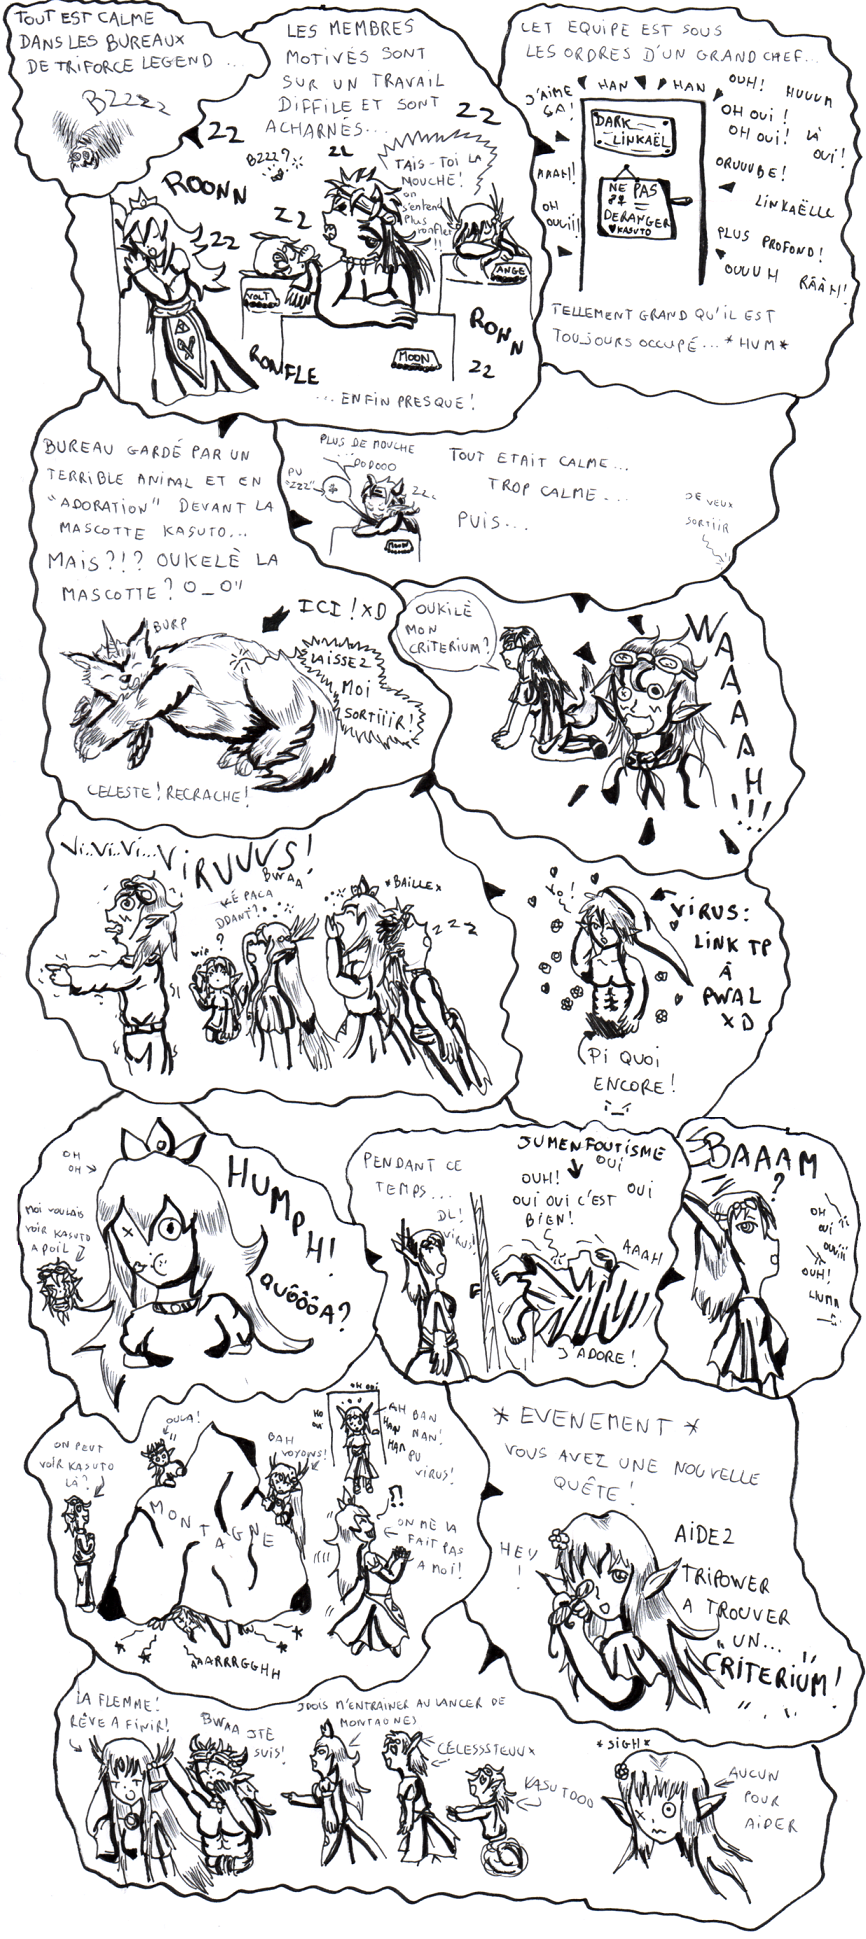 TOUT EST CALME
DANS LES BUREAUX
DE TRIFORCE LEGEND ...
BZZZZ
LES MEMBRES
MOTIVÉS SONT
SUR UN TRAVAIL
DIFFILE ET SONT
ACHARNÉS...
ZZ
ZZ
ROONN
BZZZ?
ZZ
TAIS-TOI LA
MOUCHE!
on
s'entend
plus
ronfler
!!
ZZ
ZZ
VOLT
ANGE
MOON
RONFLE
RONN
ZZ
... ENFIN PRESQUE!
CET EQUIPE EST SOUS
LES ORDRES D'UN GRAND CHEF...
J'AIME
ÇA!
HAN
HAN
OUH!
HUUUM
OH OUI!
OH OUI!
LÀ
OUI!
DARK
LINKAËL
AAAH!
OH
OUUII!
NE PAS
DERANGER
♥KASUTO
LINKAËLLE
PLUS PROFOND!
OUUUH
RÂÂH!
TELLEMENT GRAND QU'IL EST
TOUJOURS OCCUPÉ... *HUM*
BUREAU GARDÉ PAR UN
TERRIBLE ANIMAL ET EN
"ADORATION" DEVANT LA
MASCOTTE KASUTO...
MAIS?!? OUKELÈ LA
MASCOTTE? O_O"
BURP
ICI! XD
LAISSEZ
MOI
SORTIIIR!
CELESTE! RECRACHE!
PLUS DE MOUCHE
... DODOOO
PU
"ZZZ"
ZZZ
MOON
TOUT ETAIT CALME...
TROP CALME...
PUIS...
JE VEUX
SORTIIR
OUKILÈ
MON
CRITERIUM?
WAAAAAH!!!
Vi..Vi..Vi... VIRUUUS!
BWAA
KÉ PACA
DDANT?
VIP
?
*BAILLE*
ZZZ
YO!
VIRUS:
LINK TP
À
PWAL
XD
PI QUOI
ENCORE!
OH
OH
MOI VOULAIS
VOIR KASUTO
A POIL
HUMPH!
QUÔÔÔA?
PENDANT CE
TEMPS...
DL!
VIRUS!
JUMENFOUTISME
OUI
OUH!
OUI
OUI OUI C'EST
BIEN!
AAAH
J'ADORE!
BAAAM
?
OH
OUI
OUIII
OUH!
HUMM
ON PEUT
VOIR KASUTO
LÀ?
OULA!
MONTAGNE
BAH
VOYONS!
OH OUI
HO
OUI
AH BAN
NAN!
PU
VIRUS!
HAN
HAN
?!
ON MÈ LA
FAIT PAS
A MOI!
AAARRRGGHH
* EVENEMENT *
VOUS AVEZ UNE NOUVELLE
QUÊTE!
HEY
!
AIDEZ
TRIPOWER
A TROUVER
UN...
CRITERIUM!
LA FLEMME!
RÊVE A FINIR!
BWAA JTE
SUIS!
JDOIS M'ENTRAINER AU LANCER DE
MONTAGNES
CÉLESSSTEUUX
KASUTOOO
*SIGH*
AUCUN
POUR
AIDER